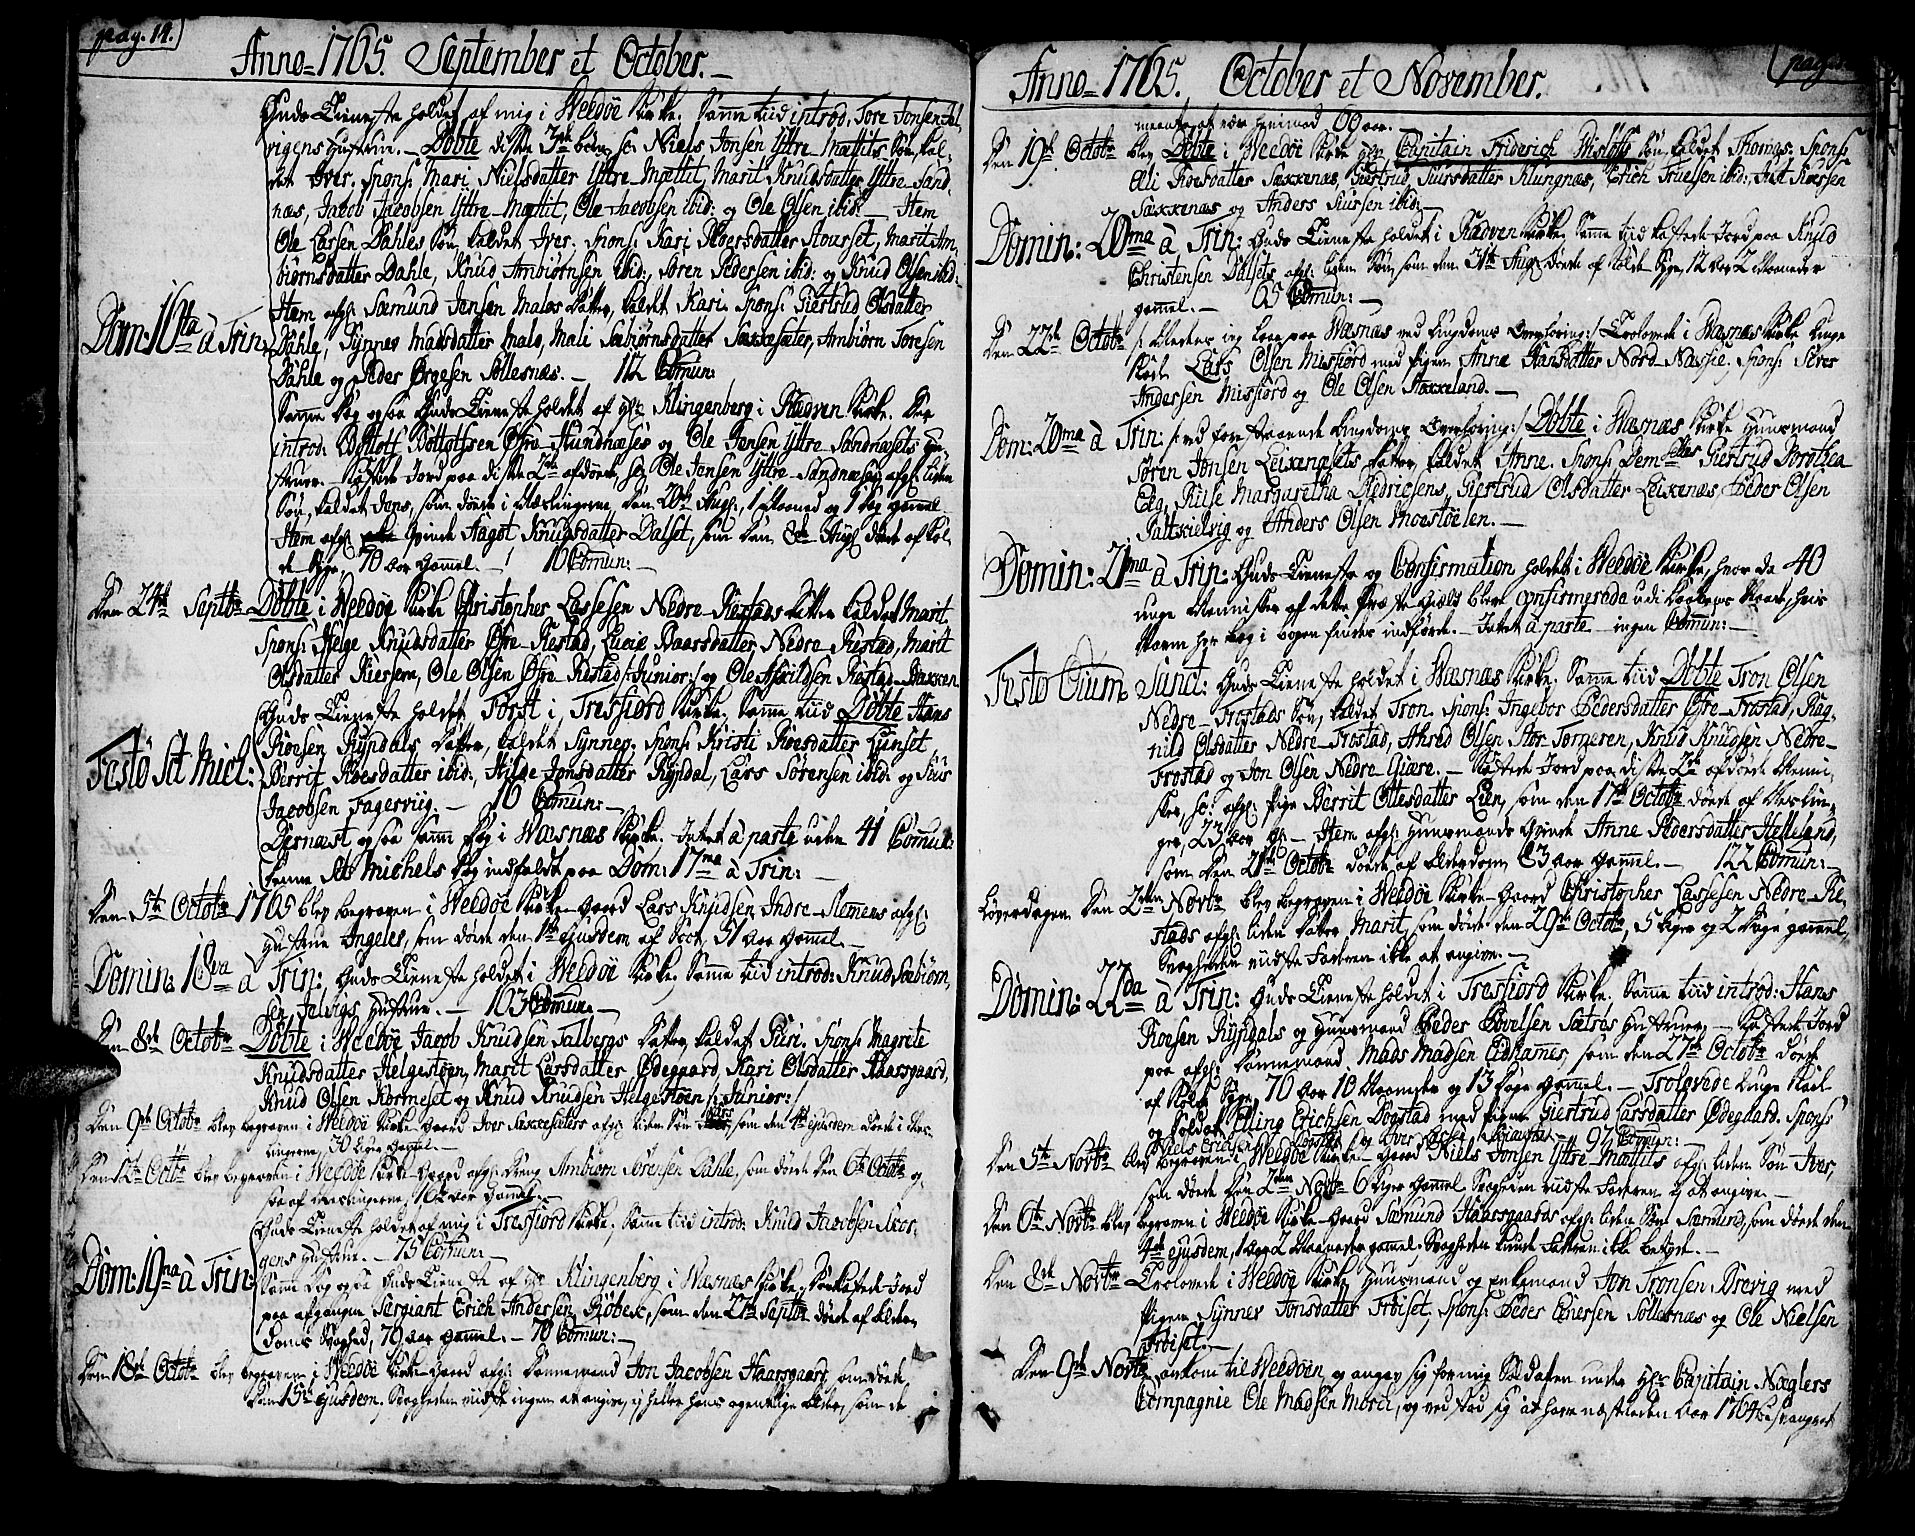 pag. 14.
Anno 1765. September et October.
Guds Tieneste holdet af mig i Weedöe Kirke. Samme tiid introd. Tore Jonsen Jel-
vigens Hustrue. Döbte disse 3de börn, sc: Niels Jonsen Yttre-Mættits Sön, kal-
det Iver. Spons: Mari Nielsdatter Yttre-Mættit, Marit Knudsdatter Yttre-Sand-
næs, Jacob Jacobsen Yttre-Mættit, Ole Jacobsen ibid: og Ole Olsen ibid: Item
Ole Larsen Dahles Sön, kaldet Iver. Spons: Kari Roersdatter Stourset, Marit Am-
biörnsdatter Dahle, Knud Ambiörnsen ibid: Sören Pedersen ibid: og Knud Olsen ibid:
Item afg: Sæmund Jensen Maloes datter, kaldet Kari. Spons: Giertrud Olsdatter
Dom: 16ta à Trin:
Dahle, Synnev Madsdatter Malo, Mali Sæbiörnsdatter Saxxesæter, Ambiörn Toresen
Dahle og Peder Örgesen Sollesnæs. 112 Comun:
Samme Dag ogsaa Guds Tieneste holdet af Hr. Klingenberg i Rödven Kirke. Der
introd: Bottolf Bottolfsen Öfre-Hundnæses og Ole Jensen Yttre-Sandnæsets Hu-
struer. Kastede Jord paa disse 2de afdöde, sc: Ole Jensen Yttre-Sandnæses afg: liden
Sön, kaldet Jens, som döde i Meslingerne, den 20de Aug: 1 Maaned og 1 Dag gammel.
Item afg: Qvinde Aagot Knudsdatter Dalset, som den 8de Aug: döde af Kol-
de Syge, 70 Aar Gammel. 10 Comun:
Den 24de Septbr Döbte i Weedöe Kirke Christopher Lassesen Nedre-Kiestads datter kaldet Marit.
Spons: Helge Knudsdatter Öfre-Kiestad, Lucie Baarsdatter Nedre-Kiestad, Marit
Olsdatter Kiersem, Ole Olsen Öfre-Kiestad /:Junior:/ og Ole Askildsen Kiestad-Baxxen.
Guds Tieneste holdet Först i Tresfiord Kirke. Samme tiid Döbte Hans
Roesen Kyndals datter, kaldet Synnev. Spons: Kristi Roesdatter Lunset,
Festo Sti Mich:
Berrit Roesdatter ibid: Hilge Jonsdatter Kyndal, Lars Sörensen ibid: og Siur
Jacobsen Fagerviig. 76 Comun:
Dernæst ogsaa samme Dag i Wæsnæs Kirke. Intet à parte uden 41 Comun:
Denne Sti Michels Dag indfaldt paa Dom: 17ma à Trin:
Den 5te Octobr 1765 blev begraven i Weedöe Kirke-Gaard Lars Knudsen Indre-Slemens afg:
Hustrue Angeles, som döde den 1te Ejusdem af Soot, 51 Aar Gammel.
Domin: 18va à Trin: Guds Tieneste holdet i Weedöe Kirke. Samme tiid introd: Knud Sæbiörn-
sen Jelvigs Hustrue. 103 Comun:
Den 8de Octobr Döbte i Weedöe Jacob Knudsen Talbergs datter, kaldet Siri. Spons: Magrete
Knudsdatter Helgestöen, Marit Larsdatter Ödegaard, Kari Olsdatter Haarsgaard,
Knud Olsen Kormeset og Knud Knudsen Helgestöen /:Junior:/
Den 9de Octobr blev begraven i Weedöe Kirke-Gaard Iver Saxxesæters afg: liden Sön Lars, som den 4de ejusdem döde i Mes-
lingerne, 30 Uger Gammel.
Den 12te Octbr blev begraven i Weedöe Kirke-Gaard afg: Dreng Ambiörn Sörensen Dahle, som döde den 6te Octobr og-
saa af Meslingerne, 16 Aar Gammel.
Guds Tieneste holdet af mig i Tresfiord Kirke. Samme tiid introd: Knud Jacobsen Skor-
gens Hustrue. 75 Comun:
Dom: 19na à Trin:
Samme Dag ogsaa Guds Tieneste af Hr Klingenberg i Wæsnæs Kirke. Der kastede Jord
paa afgangen Sergiant Erich Andersen Röbek, som den 27de Septbr döde af Alder-
doms Svaghed, 79 Aar Gammel. 70 Comun:
Den 18de Octobr blev begraven i Weedöe Kirke-Gaard afg: Dannemand Jon Jacobsen Haarsgaard, som döde
den 15de ejusdem. Svagheden vidste ingen at angive, ej heller hans egentlige Alder, som de
Anno 1765. October et November.
pag.
meente at være henimod 60 aar.
Den 19de Octobr blev Döbte i Weedöe Kirke Hr Capitain Friderich Sön, kaldet Thomas. Spons:
Æli Roesdatter Saxxenæs, Giertrud Siursdatter Klungnæs, Erich Truelsen ibid: Iversen
Saxxenæs og Anders Siursen ibid:
Domin: 20ma à Trin: Guds Tieneste holdet i Rödven Kirke. Samme tiid kastede Jord paa Knud
Christensen Dalsets afg: liden Sön, som den 31te Aug: döde af Kolde Syge, 12 Aar 2 Maaneder
gammel. 65 Comun:
Den 22de Octobr /: Wæsnæs ved Ungdoms Overhöring:/ Trolovede i Wæsnæs Kirke Unge
Karl Lars Olsen Misfiord med Pigen Anne Hansdatter Nord-Næssie. Spons: Peter
Andersen Misfiord og Ole Olsen Saxxeland.
Dom: 20ma à Trin: /:ved forestaaende Ungdoms Overhöring:/ Döbte i Wæsnæs Kirke Huusmand
Sören Jonsen Leixenæsets datter, kaldet Anne. Spons: Demlles Giertrud Dorothea
Elg, Riise Margaretha Diedricsens, Giertrud Olsdatter Leixenæs, Peder Olsen
Saltkielvig og Anders Olsen Moestöelen.
Domin: 21ma à Trin: Guds Tieneste og Confirmation holdet i Weedöe Kirke, hvor da 40
unge Mennisker af dette Præste-Gield bleve confirmerede udi Daabens Naade, hvis
Navne her bag i bogen findes indförte. Intet à parte ingen Comun:
Festo Oium Sanct: Guds Tieneste holdet i Wæsnæs Kirke. Samme tiid Döbte Tron Olsen
Nedre-Frostads Sön, kaldet Tron. Spons: Ingebor Pedersdatter Öfre-Frostad, Rag-
nild Olsdatter Nedre-Frostad, Ahsed Olsen Stor-Torneren, Knud Knudsen Nedre-
Frostad og Jon Olsen Nedre-Giære. Kastede Jord paa disse 2de afdöde Menni-
sker, sc: afg: Pige Berrit Ottesdatter Lien, som den 17de Octobr döde af Meslin-
ger, 23 Aar Gl. Item afg: Huusmands Qvinde Anne Pedersdatter Helleland,
som den 21de Octobr döde af Alderdom, 83 Aar Gammel. 122 Comun:
Löverdagen den 2den Novbr blev begraven i Weedöe Kirke-Gaard Christopher Lassesen Nedre-Kie-
stads afg: liden datter Marit, som döde den 29de Octobr, 5 Uger og 2 Dage gammel,
Svagheden vidste Faderen ikke at angive.
Domin: 22da à Trin: Guds Tieneste holdet i Tresfiord Kirke. Samme tiid introd: Hans
Roesen Kyndals og Huusmand Peder Povelsen Sætres Hustruer. Kastede Jord
paa afg: Dannemand Mads Madsen Eidhamer, som den 27de Octobr döde
af Kolde Syge, 70 Aar 10 Maaneder og 13 Dage Gammel. Trolovede Unge Karl
og Soldat Elling Erichsen Dogstad med Pigen Giertrud Larsdatter Ödegaard. Spons:
Niels Erichsen og Iver 97 Comun:
Den 5te Novbr blev begraven i Weedöe Kirke-Gaard Niels Jonsen Yttre-Mættits afg: liden Sön Iver,
som döde den 2den Novbr 6 Uger Gammel. Svagheden vidste Faderen ej at angive.
Den 6te Novbr blev begraven i Weedöe Kirke-Gaard Sæmund Haarsgaards afg: liden Sön Sæmund, som döde den
4de ejusdem, 1 Aar 2 Maaneder gammel. Svagheden kunde Faderen ikke betyde.
Den 8de Novbr Trolovede i Weedöe Kirke Huusmand og Enkemand Jon Tronsen Brevig med
Pigen Synnev Jonsdatter Fröiset, Spons: Peder Enersen Sollesnæs og Ole Nielsen
Fröiset.
Den 9de Novbr ankom til Weedöen, og angav sig for mig Soldaten under Hr Capitain Noglers
Compagnie Ole Madsen Morit, og vedstod sig at have næstleden Aar 1764 besvangret